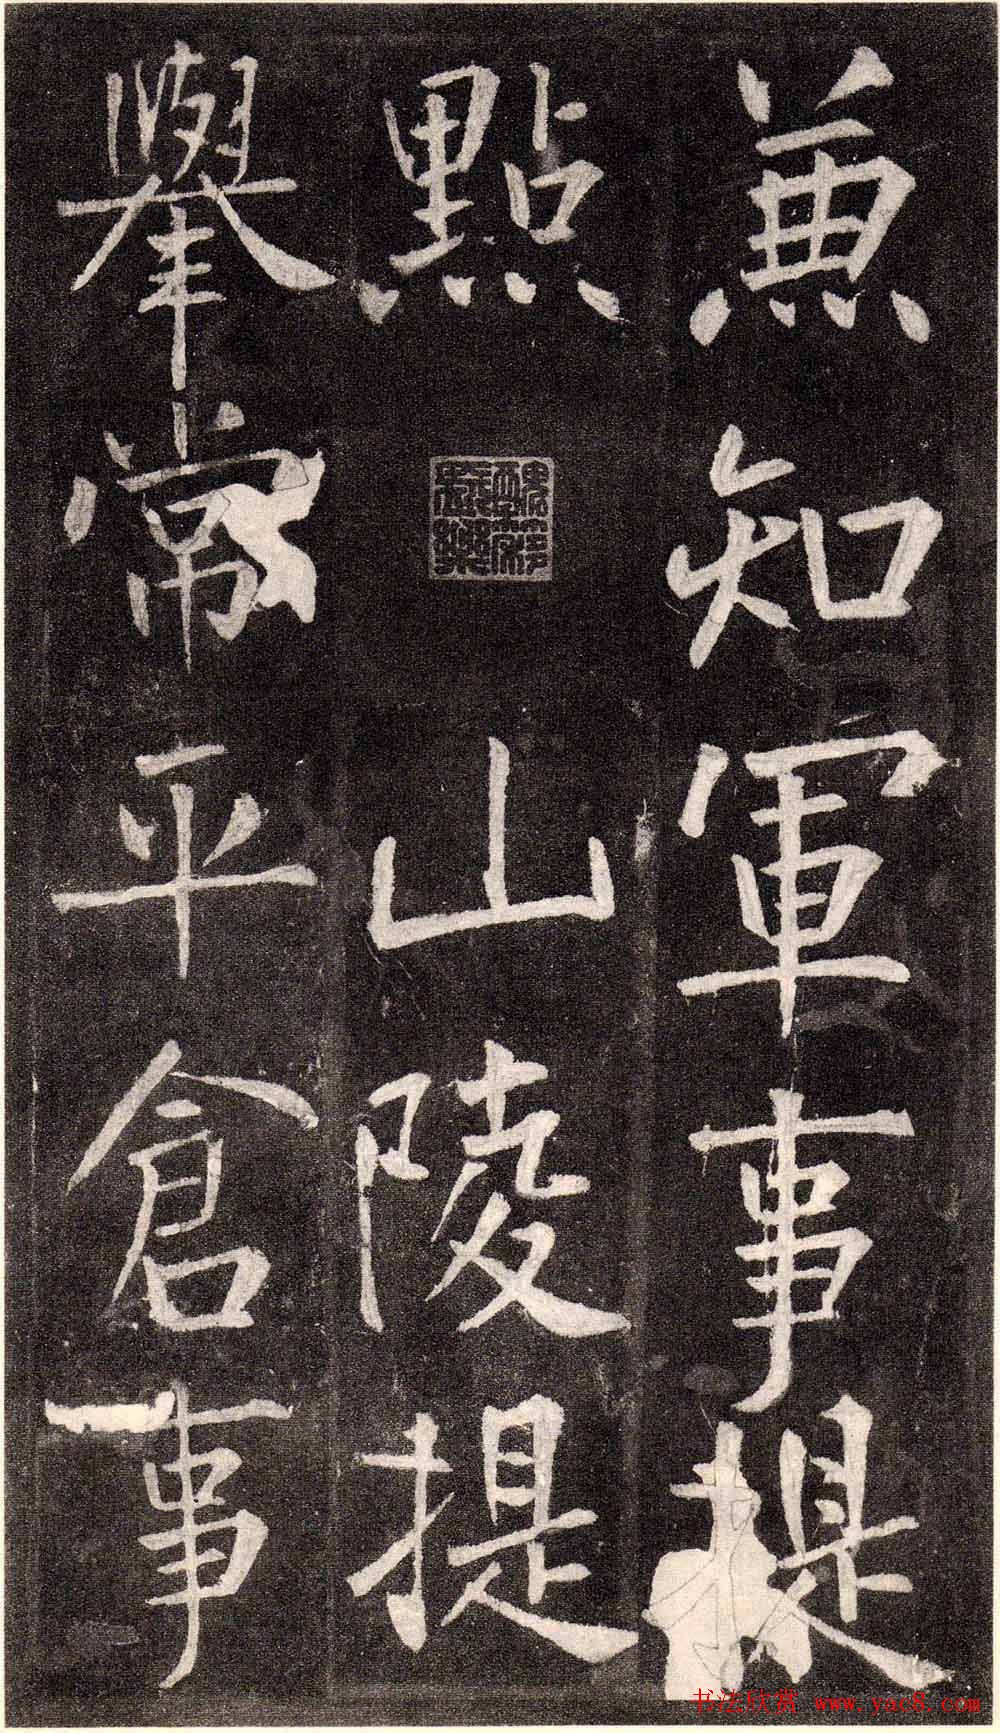 兼知軍事提
點山陵提
舉常平倉事
书法欣赏 www.yac8.com